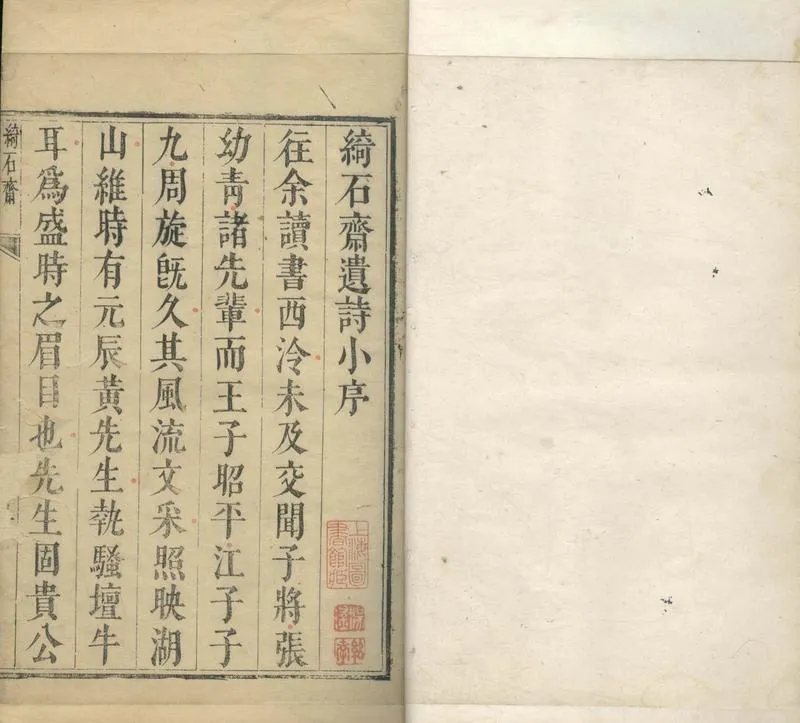 綺石齋遺詩小序
往余讀書西泠未及交聞子將張
幼青諸先輩而王子昭平江子子
九周旋旣久其風流文采照映湖
山維時有元辰黃先生執騷壇牛
耳爲盛時之眉目也先生固貴公
綺石齋
上海圖
書館藏